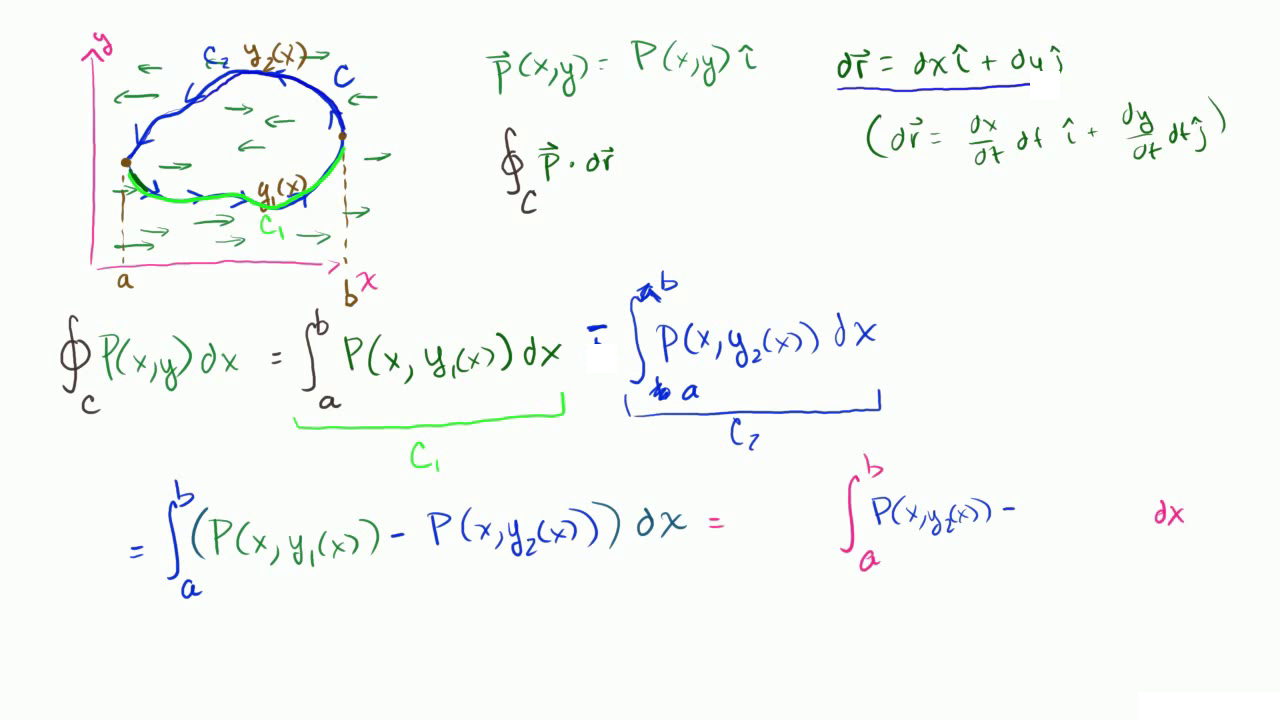 y
C₂ y₂(x) C
y₁(x)
C₁
a b x
P⃗(x,y) = P(x,y) î
dr⃗ = dx î + dy ĵ
(dr⃗ = dx/dt dt î + dy/dt dt ĵ)
∮_C P⃗ · dr⃗
∮_C P(x,y) dx = ∫_a^b P(x, y₁(x)) dx - ∫_a^b P(x, y₂(x)) dx
C₁ C₂
= ∫_a^b (P(x, y₁(x)) - P(x, y₂(x))) dx = ∫_a^b P(x, y₂(x)) - dx